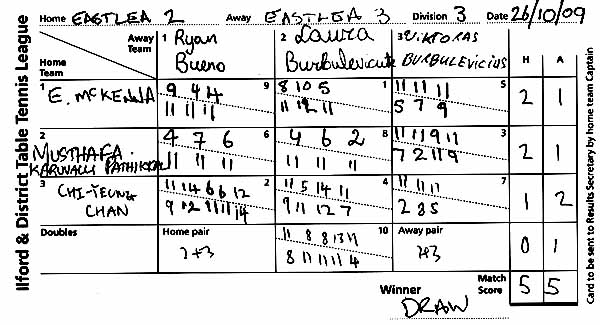 Ilford & District Table Tennis League
Home EASTLEA 2 Away EASTLEA 3 Division 3 Date 26/10/09
Away Team 1 Ryan Bueno 2 Laura Burbulevicute 3 VIKTORAS BURBULEVICIUS H A
Home Team
1 E. McKENNA 9 8 10 5 1 11 11 11 5 2 1
9 4 4 11 12 11 5 7 9
11 11 11
2 MUSTHAFA KARUVALLI PATHIKKAL 4 7 6 6 4 6 2 8 11 11 9 11 3 2 1
11 11 11 11 11 11 7 2 11 9
3 CHI-YEUNG CHAN 11 14 6 6 12 2 11 5 14 11 4 11 11 11 7 1 2
9 12 11 11 14 9 11 12 7 2 8 5
Doubles Home pair 11 8 8 13 11 10 Away pair 0 1
2+3 8 11 11 11 4 2+3
Winner DRAW Match Score 5 5
Card to be sent to Results Secretary by home team Captain